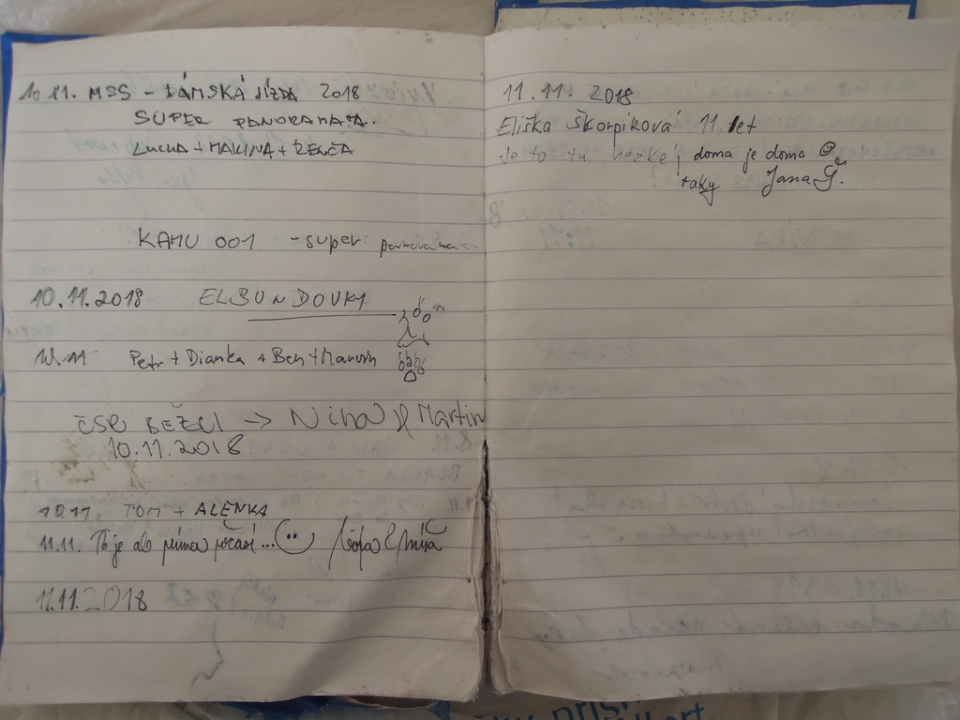 10.11. MSS - DÁMSKÁ JÍZDA 2018
SUPER PANORAMATA.
LUCKA + MALINA + ŘENČA
KAMU 001 - super
10.11.2018 ELBUNDOVKY
10.11 Petr + Dianka + Ben +
ČSR BĚŽCI → Nina & Martin
10.11.2018
10.11 TOM + ALENKA
11.11. To je ale príma počasí...
11.11.2018
11.11. 2018
Eliška Škorpíková 11 let
Je to tu hezké, doma je doma
taky Jana Š.